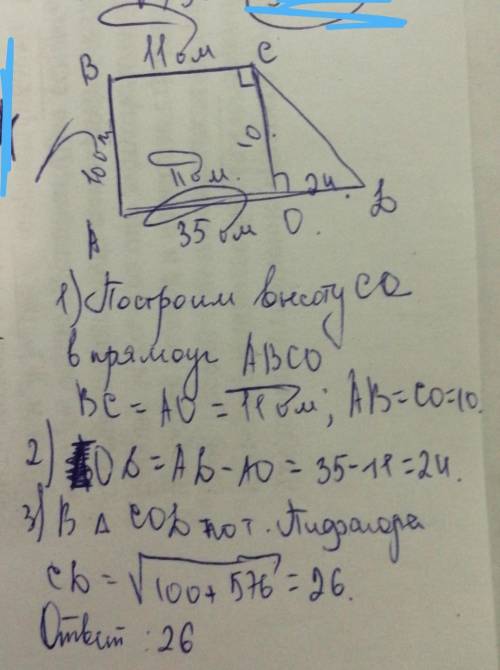 11 см
B
C
10
10 см
11 см.
24.
D
A
35 см
O.
1) Построим высоту CO
в прямоуг ABCO
BC = AO = 11 см; AB = CO = 10.
2) OD = AD - AO = 35 - 11 = 24.
3) В Δ COD по т. Пифагора
CD = √100 + 576 = 26.
Ответ : 26